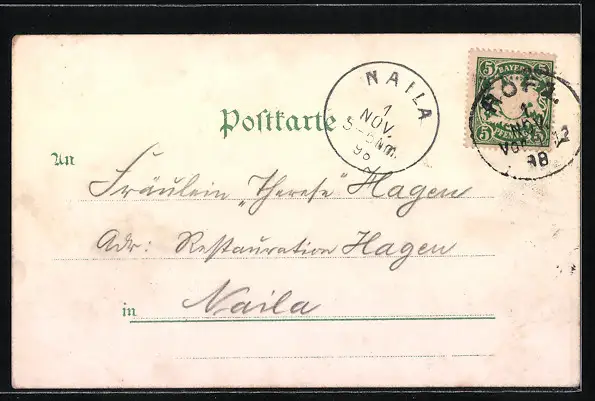 Postkarte
NAILA
1
NOV.
98
5 BAYERN 5
5 PFENNIG 5
HOF 1.
1
NOV
VOR
98
An
Fräulein „Therese“ Hagen
Adr: Restauration Hagen
in Naila